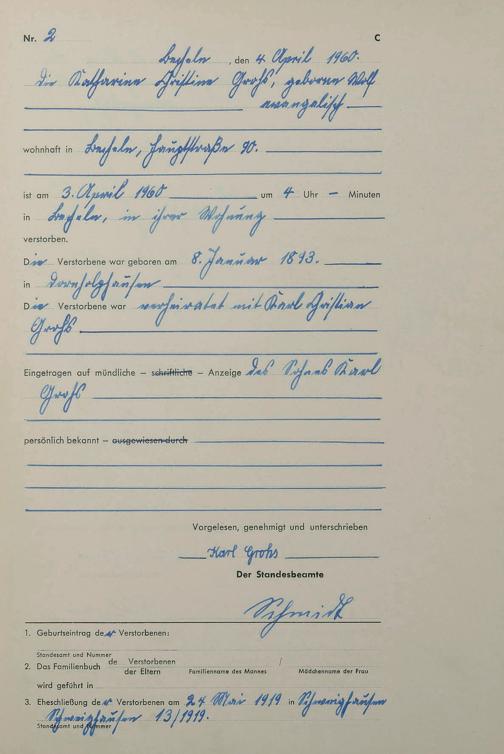 Nr. 2 C
Becheln, den 4. April 1960.
Die Katharine Christine Grohs, geborene Wolf
evangelisch
wohnhaft in Becheln, Hauptstraße 90.
ist am 3. April 1960 um 4 Uhr — Minuten
in Becheln, in ihrer Wohnung
verstorben.
Die Verstorbene war geboren am 8. Januar 1893.
in Dornholzhausen
Die Verstorbene war verheiratet mit Karl Christian
Grohs
Eingetragen auf mündliche – schriftliche – Anzeige des Sohnes Karl
Grohs
persönlich bekannt – ausgewiesen durch
Vorgelesen, genehmigt und unterschrieben
Karl Grohs
Der Standesbeamte
Schmidt
1. Geburtseintrag der Verstorbenen:
Standesamt und Nummer
2. Das Familienbuch de Verstorbenen /
der Eltern Familienname des Mannes Mädchenname der Frau
wird geführt in
3. Eheschließung der Verstorbenen am 24 Mai 1919 in Schweighausen
Schweighausen 13/1919.
Standesamt und Nummer